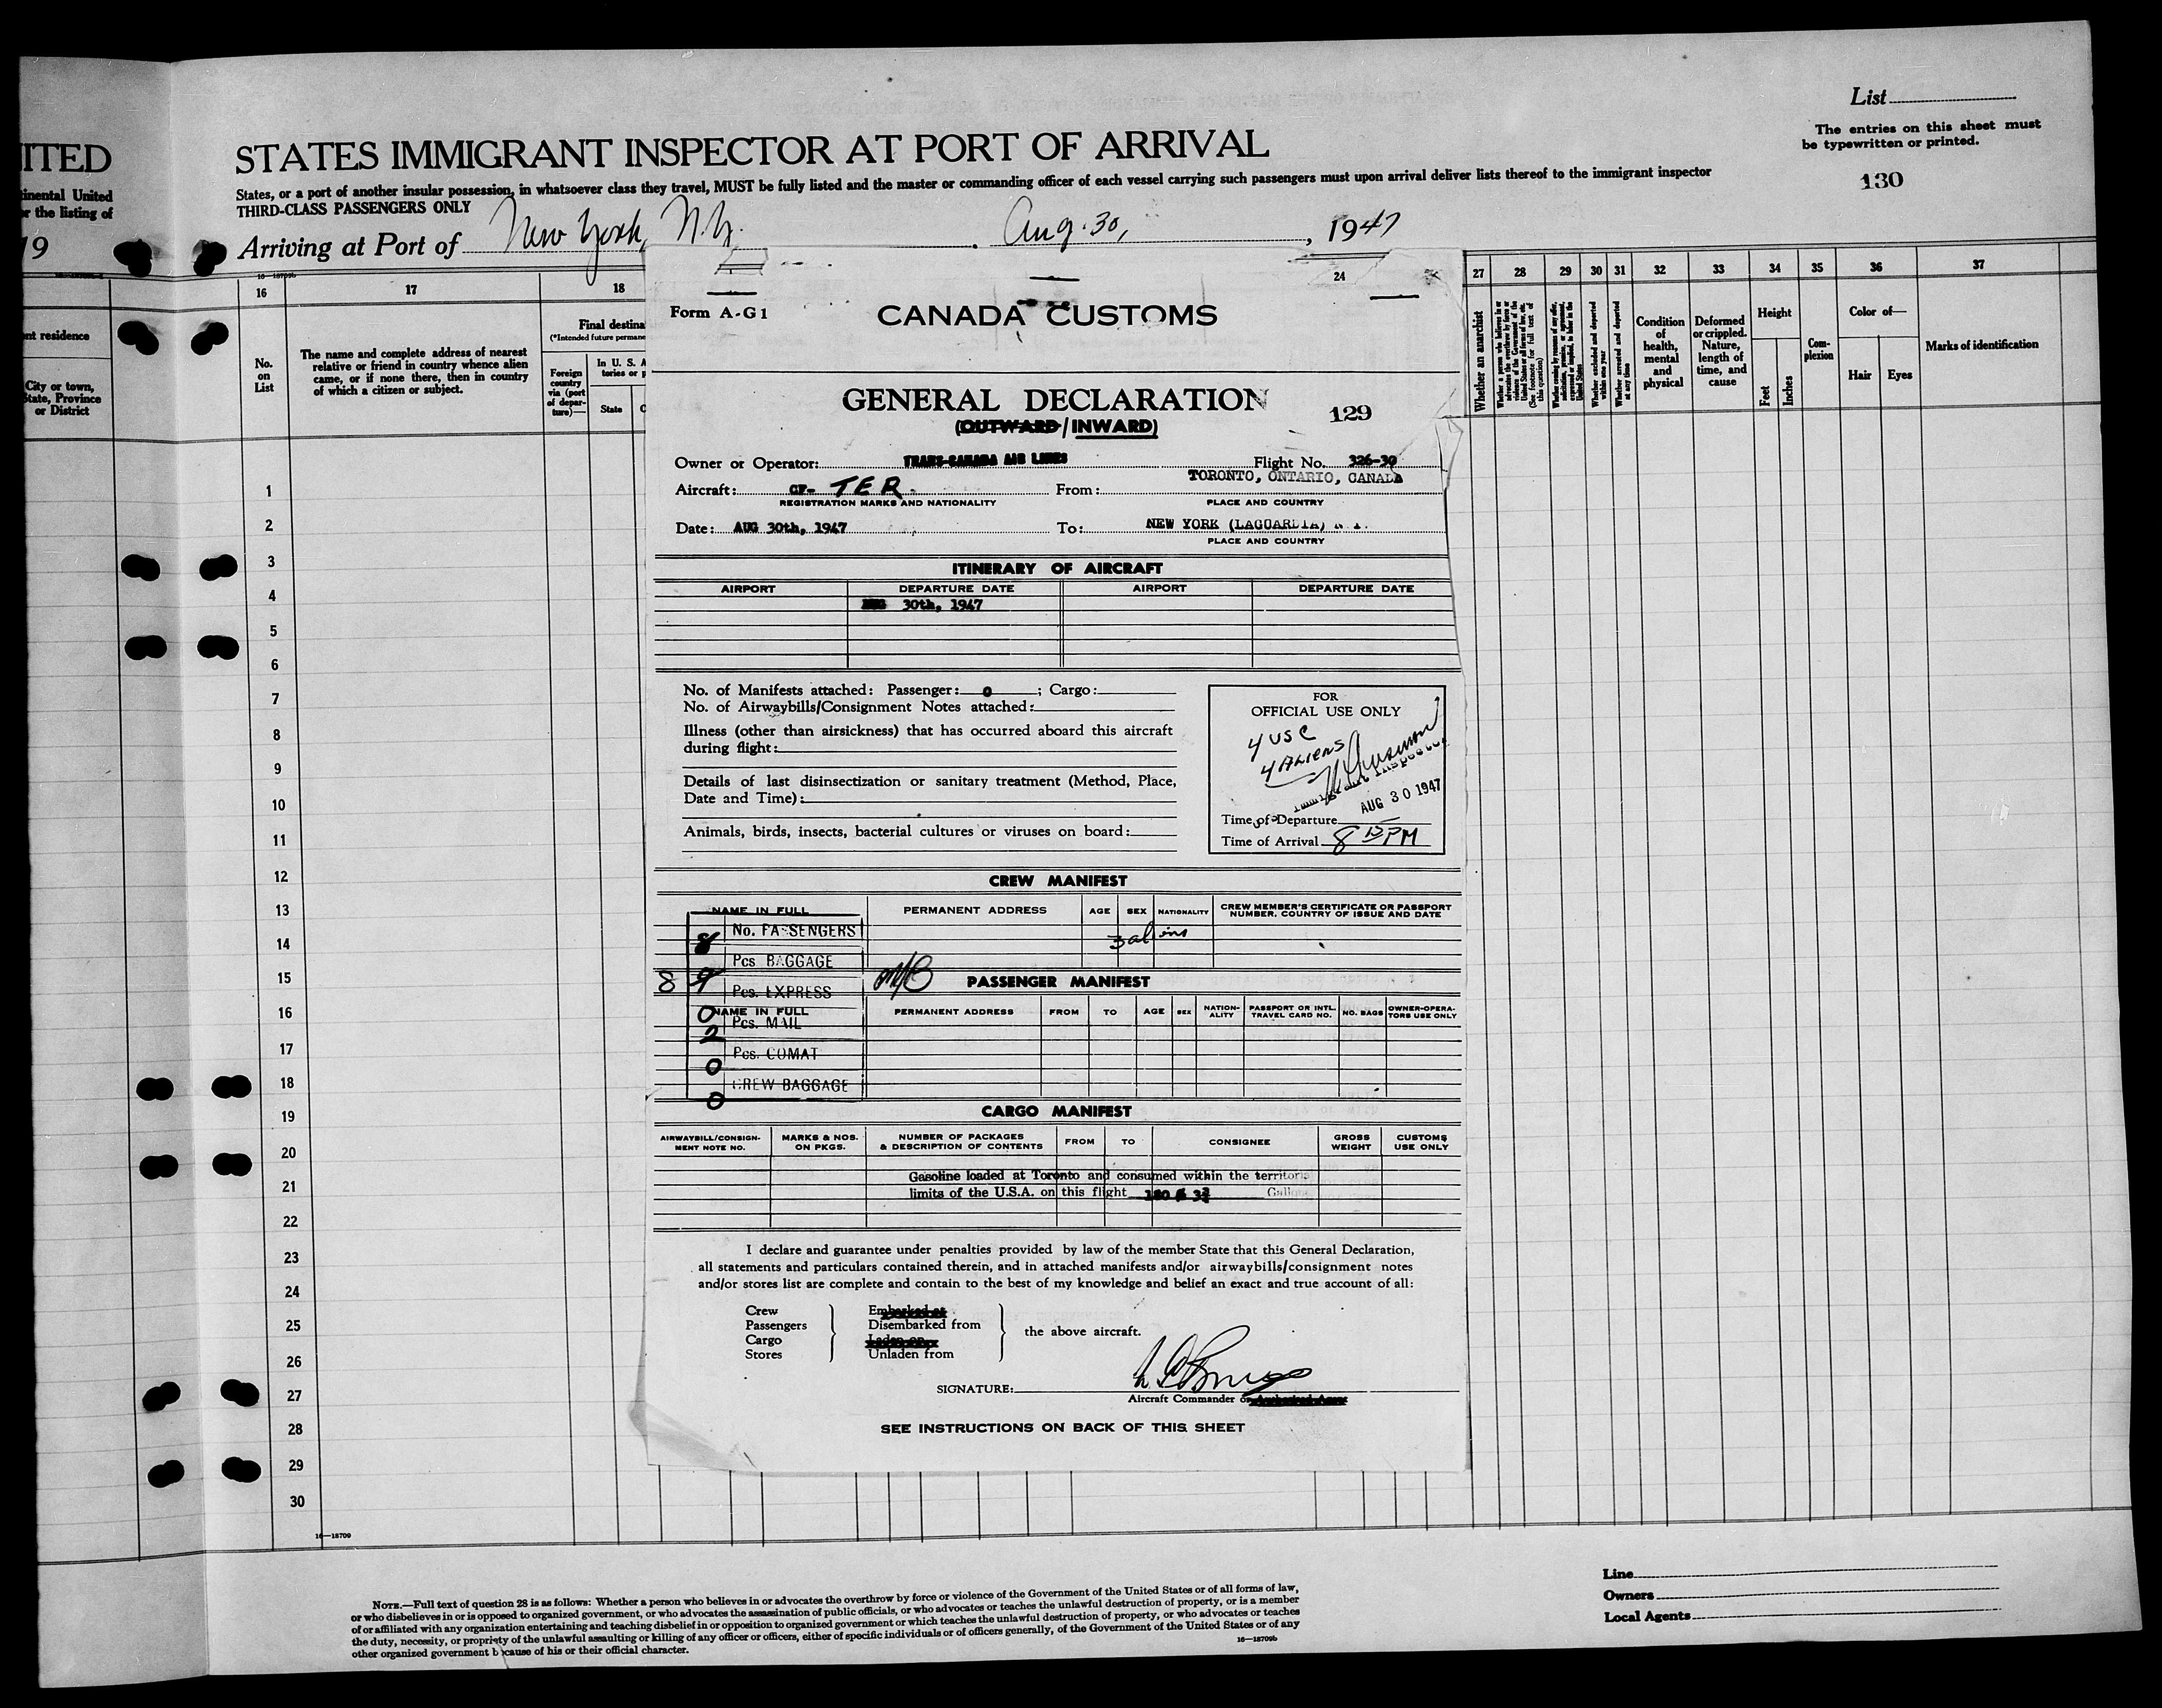 List
The entries on this sheet must
be typewritten or printed.
130
ITED
STATES IMMIGRANT INSPECTOR AT PORT OF ARRIVAL
tinental United
r the listing of
19
States, or a port of another insular possession, in whatsoever class they travel, MUST be fully listed and the master or commanding officer of each vessel carrying such passengers must upon arrival deliver lists thereof to the immigrant inspector
THIRD-CLASS PASSENGERS ONLY
Arriving at Port of New York, N.Y. Aug. 30, 1947
nt residence
City or town,
State, Province
or District
16 17 18 24 27 28 29 30 31 32 33 34 35 36 37
No.
on
List
The name and complete address of nearest
relative or friend in country whence alien
came, or if none there, then in country
of which a citizen or subject.
Final destina
(*Intended future permane
Foreign
country
via (port
of depar-
ture)—
In U. S. A
tories or p
State
Whether an anarchist
Whether excluded and deported
within one year
Whether arrested and deported
at any time
Condition
of
health,
mental
and
physical
Deformed
or crippled.
Nature,
length of
time, and
cause
Height
Feet
Inches
Com-
plexion
Color of—
Hair Eyes
Marks of identification
1
2
3
4
5
6
7
8
9
10
11
12
13
14
15
16
17
18
19
20
21
22
23
24
25
26
27
28
29
30
16—18709
Form A-G1
CANADA CUSTOMS
GENERAL DECLARATION
129
(OUTWARD/INWARD)
Owner or Operator: TRANS-CANADA AIR LINES Flight No. 326-30
Aircraft: CF- TER From: TORONTO, ONTARIO, CANADA
REGISTRATION MARKS AND NATIONALITY PLACE AND COUNTRY
Date: AUG 30th, 1947 To: NEW YORK (LAGUARDIA) N.Y.
PLACE AND COUNTRY
ITINERARY OF AIRCRAFT
AIRPORT DEPARTURE DATE AIRPORT DEPARTURE DATE
AUG 30th, 1947
No. of Manifests attached: Passenger: 0 ; Cargo:
No. of Airwaybills/Consignment Notes attached:
Illness (other than airsickness) that has occurred aboard this aircraft
during flight:
Details of last disinsectization or sanitary treatment (Method, Place,
Date and Time):
Animals, birds, insects, bacterial cultures or viruses on board:
FOR
OFFICIAL USE ONLY
4 USC
4 ALIENS
Immigrant Inspector
AUG 30 1947
Time of Departure
Time of Arrival 8 13 PM
CREW MANIFEST
NAME IN FULL PERMANENT ADDRESS AGE SEX NATIONALITY CREW MEMBER'S CERTIFICATE OR PASSPORT
NUMBER, COUNTRY OF ISSUE AND DATE
8 No. PASSENGERS
3 aliens
Pcs BAGGAGE
8 9 Pcs. EXPRESS
PASSENGER MANIFEST
NAME IN FULL PERMANENT ADDRESS FROM TO AGE SEX NATION-
ALITY PASSPORT OR INTL.
TRAVEL CARD NO. NO. BAGS OWNER-OPERA-
TORS USE ONLY
0 Pcs. MAIL
2 Pcs. COMAT
0 CREW BAGGAGE
0
CARGO MANIFEST
AIRWAYBILL/CONSIGN-
MENT NOTE NO. MARKS & NOS.
ON PKGS. NUMBER OF PACKAGES
& DESCRIPTION OF CONTENTS FROM TO CONSIGNEE GROSS
WEIGHT CUSTOMS
USE ONLY
Gasoline loaded at Toronto and consumed within the territorial
limits of the U.S.A. on this flight Gallons
I declare and guarantee under penalties provided by law of the member State that this General Declaration,
all statements and particulars contained therein, and in attached manifests and/or airwaybills/consignment notes
and/or stores list are complete and contain to the best of my knowledge and belief an exact and true account of all:
Crew Embarked at
Passengers Disembarked from
Cargo Laden on
Stores Unladen from
the above aircraft.
SIGNATURE:
Aircraft Commander or Authorized Agent
SEE INSTRUCTIONS ON BACK OF THIS SHEET
Line
Owners
Local Agents
NOTE.—Full text of question 28 is as follows: Whether a person who believes in or advocates the overthrow by force or violence of the Government of the United States or of all forms of law,
or who disbelieves in or is opposed to organized government, or who advocates the assassination of public officials, or who advocates or teaches the unlawful destruction of property, or is a member
of or affiliated with any organization entertaining and teaching disbelief in or opposition to organized government or which teaches the unlawful destruction of property, or who advocates or teaches
the duty, necessity, or propriety of the unlawful assaulting or killing of any officer or officers, either of specific individuals or of officers generally, of the Government of the United States or of any
other organized government because of his or their official character.
16—18709b